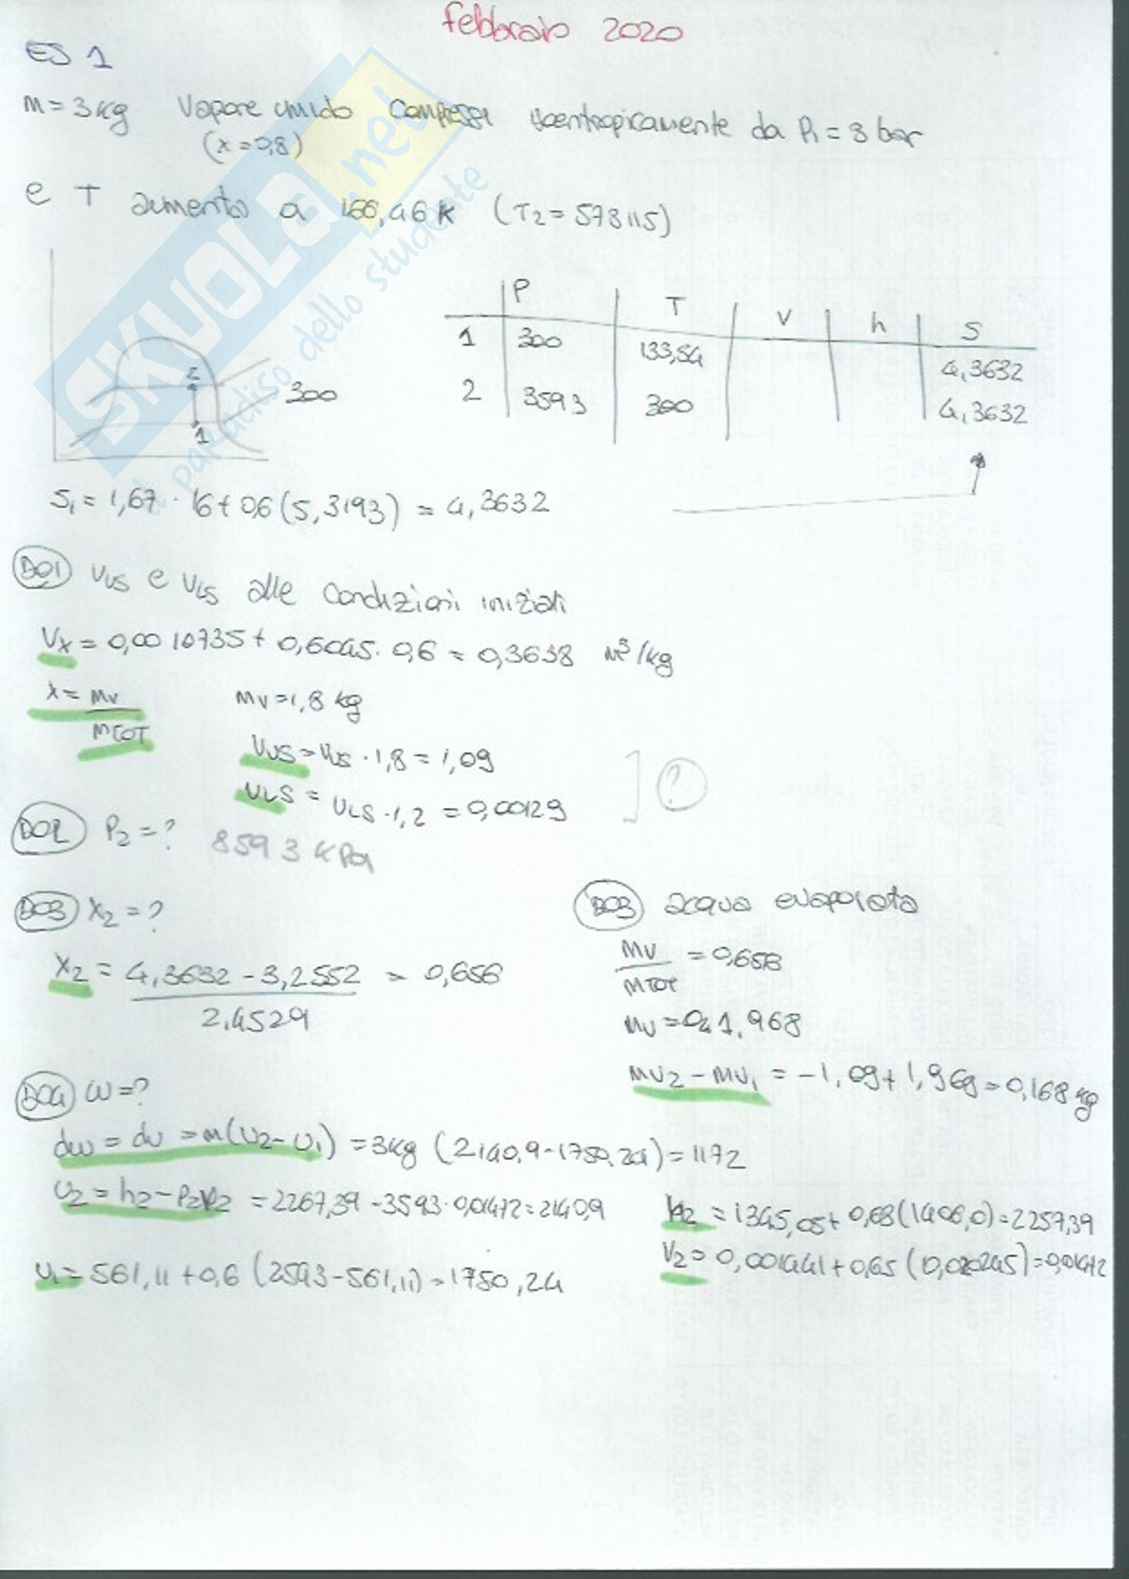 febbraio 2020
ES 1
m = 3 kg Vapore umido compressi isoentropicamente da P1 = 3 bar
(x = 0,8)
e T aumento a 166,46 K (T2 = 573,15)
SKUOLA.net
paradiso dello studente
P T v h S
1 300 133,54 4,3632
2 8593 300 4,3632
2
1
300
S1 = 1,67 · 16 + 0,6 (5,3193) = 4,3632
DO1 VVS e VLS alle condizioni iniziali
Vx = 0,0010735 + 0,6045 · 0,6 = 0,3638 m³/kg
x = mv / mTOT mv = 1,8 kg
VVS = VVS · 1,8 = 1,09
VLS = VLS · 1,2 = 0,00129 ] ?
DO2 P2 = ? 8593 kPa
DO3 X2 = ?
X2 = 4,3632 - 3,2552 / 2,4529 = 0,656
DO3 acqua evaporata
mv / mTOT = 0,656
mv = 1,968
mv2 - mv1 = -1,09 + 1,969 = 0,168 kg
DO4 W = ?
dw = dU = m(U2 - U1) = 3kg (2140,9 - 1750,24) = 1172
U2 = h2 - P2V2 = 2267,39 - 8593 · 0,01472 = 2140,9
h2 = 1345,05 + 0,63 (1406,0) = 2257,39
V2 = 0,001441 + 0,65 (0,020245) = 0,01472
U1 = 561,11 + 0,6 (2543 - 561,11) = 1750,24